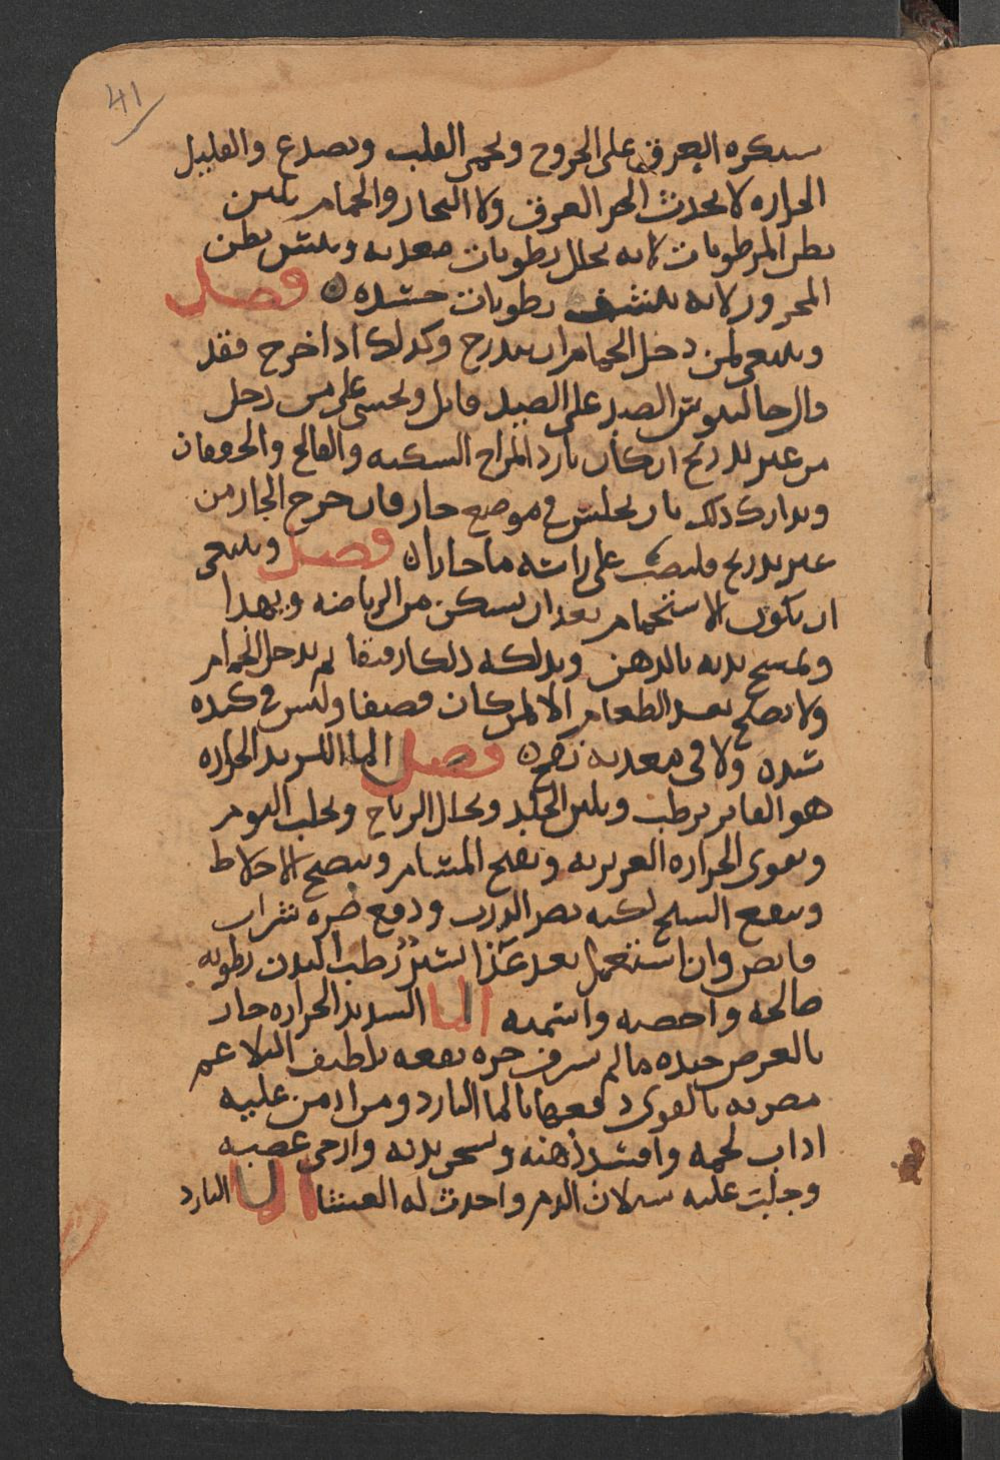 41
ستكره العرق على الخروج ويحمى القلب ويصدع والقليل
الحراره لا يحدث العرق ولا البخار والحمام يلين
بطن المرطوبات لانه يحلل رطوبات معدته وييبس بطن
المحرور لانه ينشف رطوبات جسده فصل
وينبغى لمن دخل الحمام ان يتدرج وكذلك اذا خرج فقد
قال جالينوس الضد على الضد قاتل ويخشى على من دخل
من غير تدريج ان كان بارد المزاج السكته والفالج والخفقان
وتدارك ذلك بان يجلس فى موضع حار فان خرج الحار من
غير تدريج فليصب على راسه ما حارا فصل وينبغى
ان يكون الاستحمام بعد ان يسكن من الرياضه ويهدا
ويمسح بدنه بالدهن ويدلكه دلكا رفيقا ثم يدخل الحمام
ولا يصلح بعد الطعام الا لمن كان قصفا وليس فى كبده
سده ولا فى معدته فصل الما الشديد الحراره
هو الفاتر يرطب ويلين الجلد ويحلل الرياح ويجلب النوم
ويقوى الحراره الغريزيه ويفتح المسام وينضج الاخلاط
وينفع لكنه يضر ودفع ضره شراب
قابض وان استعمل بعد غذا رطب البدن رطوبه
صالحه واخصبه واسمنه الما الشديد الحراره حار
بالعرض جيده ما لم يسرف حره نفعه تلطيف البلاغم
مضرته بالقوى دفعها بالما البارد ومن ادمن عليه
اذاب لحمه وافسد ذهنه وسخن بدنه وارخى عصبه
وجلبت عليه سيلان الدم واحدث له الغشا الما البارد